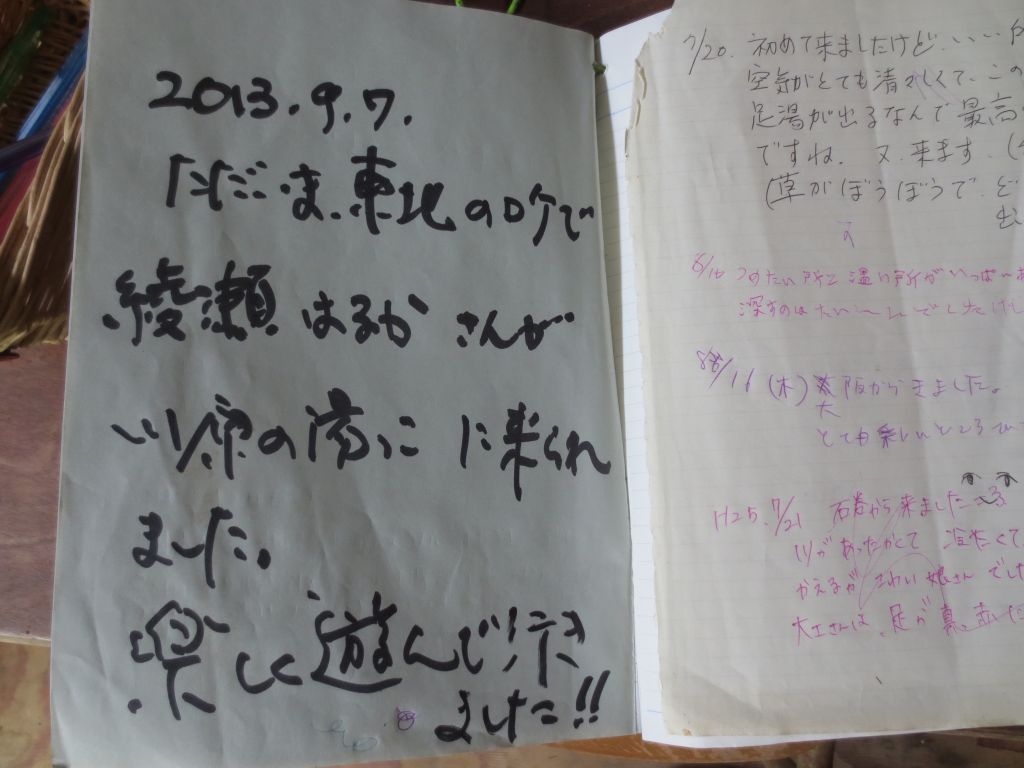 2013.9.7.
ただいま、東北のロケで
綾瀬はるかさんが
川原の湯っこに来られ
ました。
楽しく遊んで行き
ました!!
7/20. 初めて来ましたけど、いい
空気がとても清々しくて、この
足湯が出るなんて最高
ですね. 又、来ます.
(草がぼうぼうで、ど
出
つめたい所と温い所がいっぱい
/16 (木) 大阪からきました。
とても楽しいところ
H25.7/21 石巻から来ました
川があったかくて
かえるが こわい娘さんでした
大工さんは、足が真赤